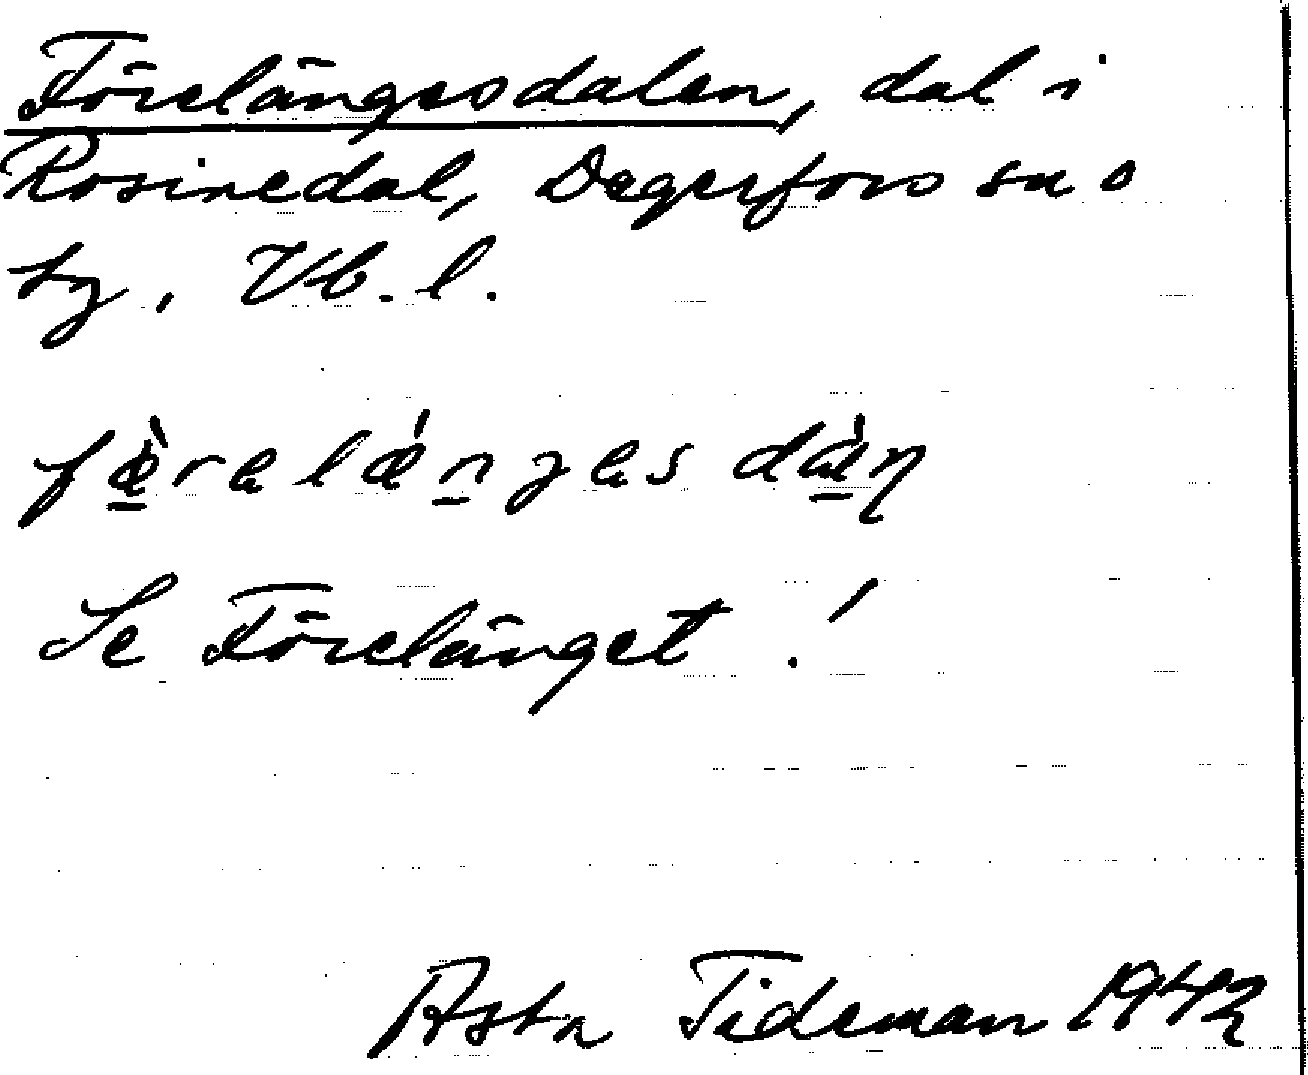 Förelängesdalen, dal i
Rosinedal, Degerfors sn o
by, Vb. l.
fæ̀relǽnges dàn
Se Förelänget !
Asta Tideman 1942